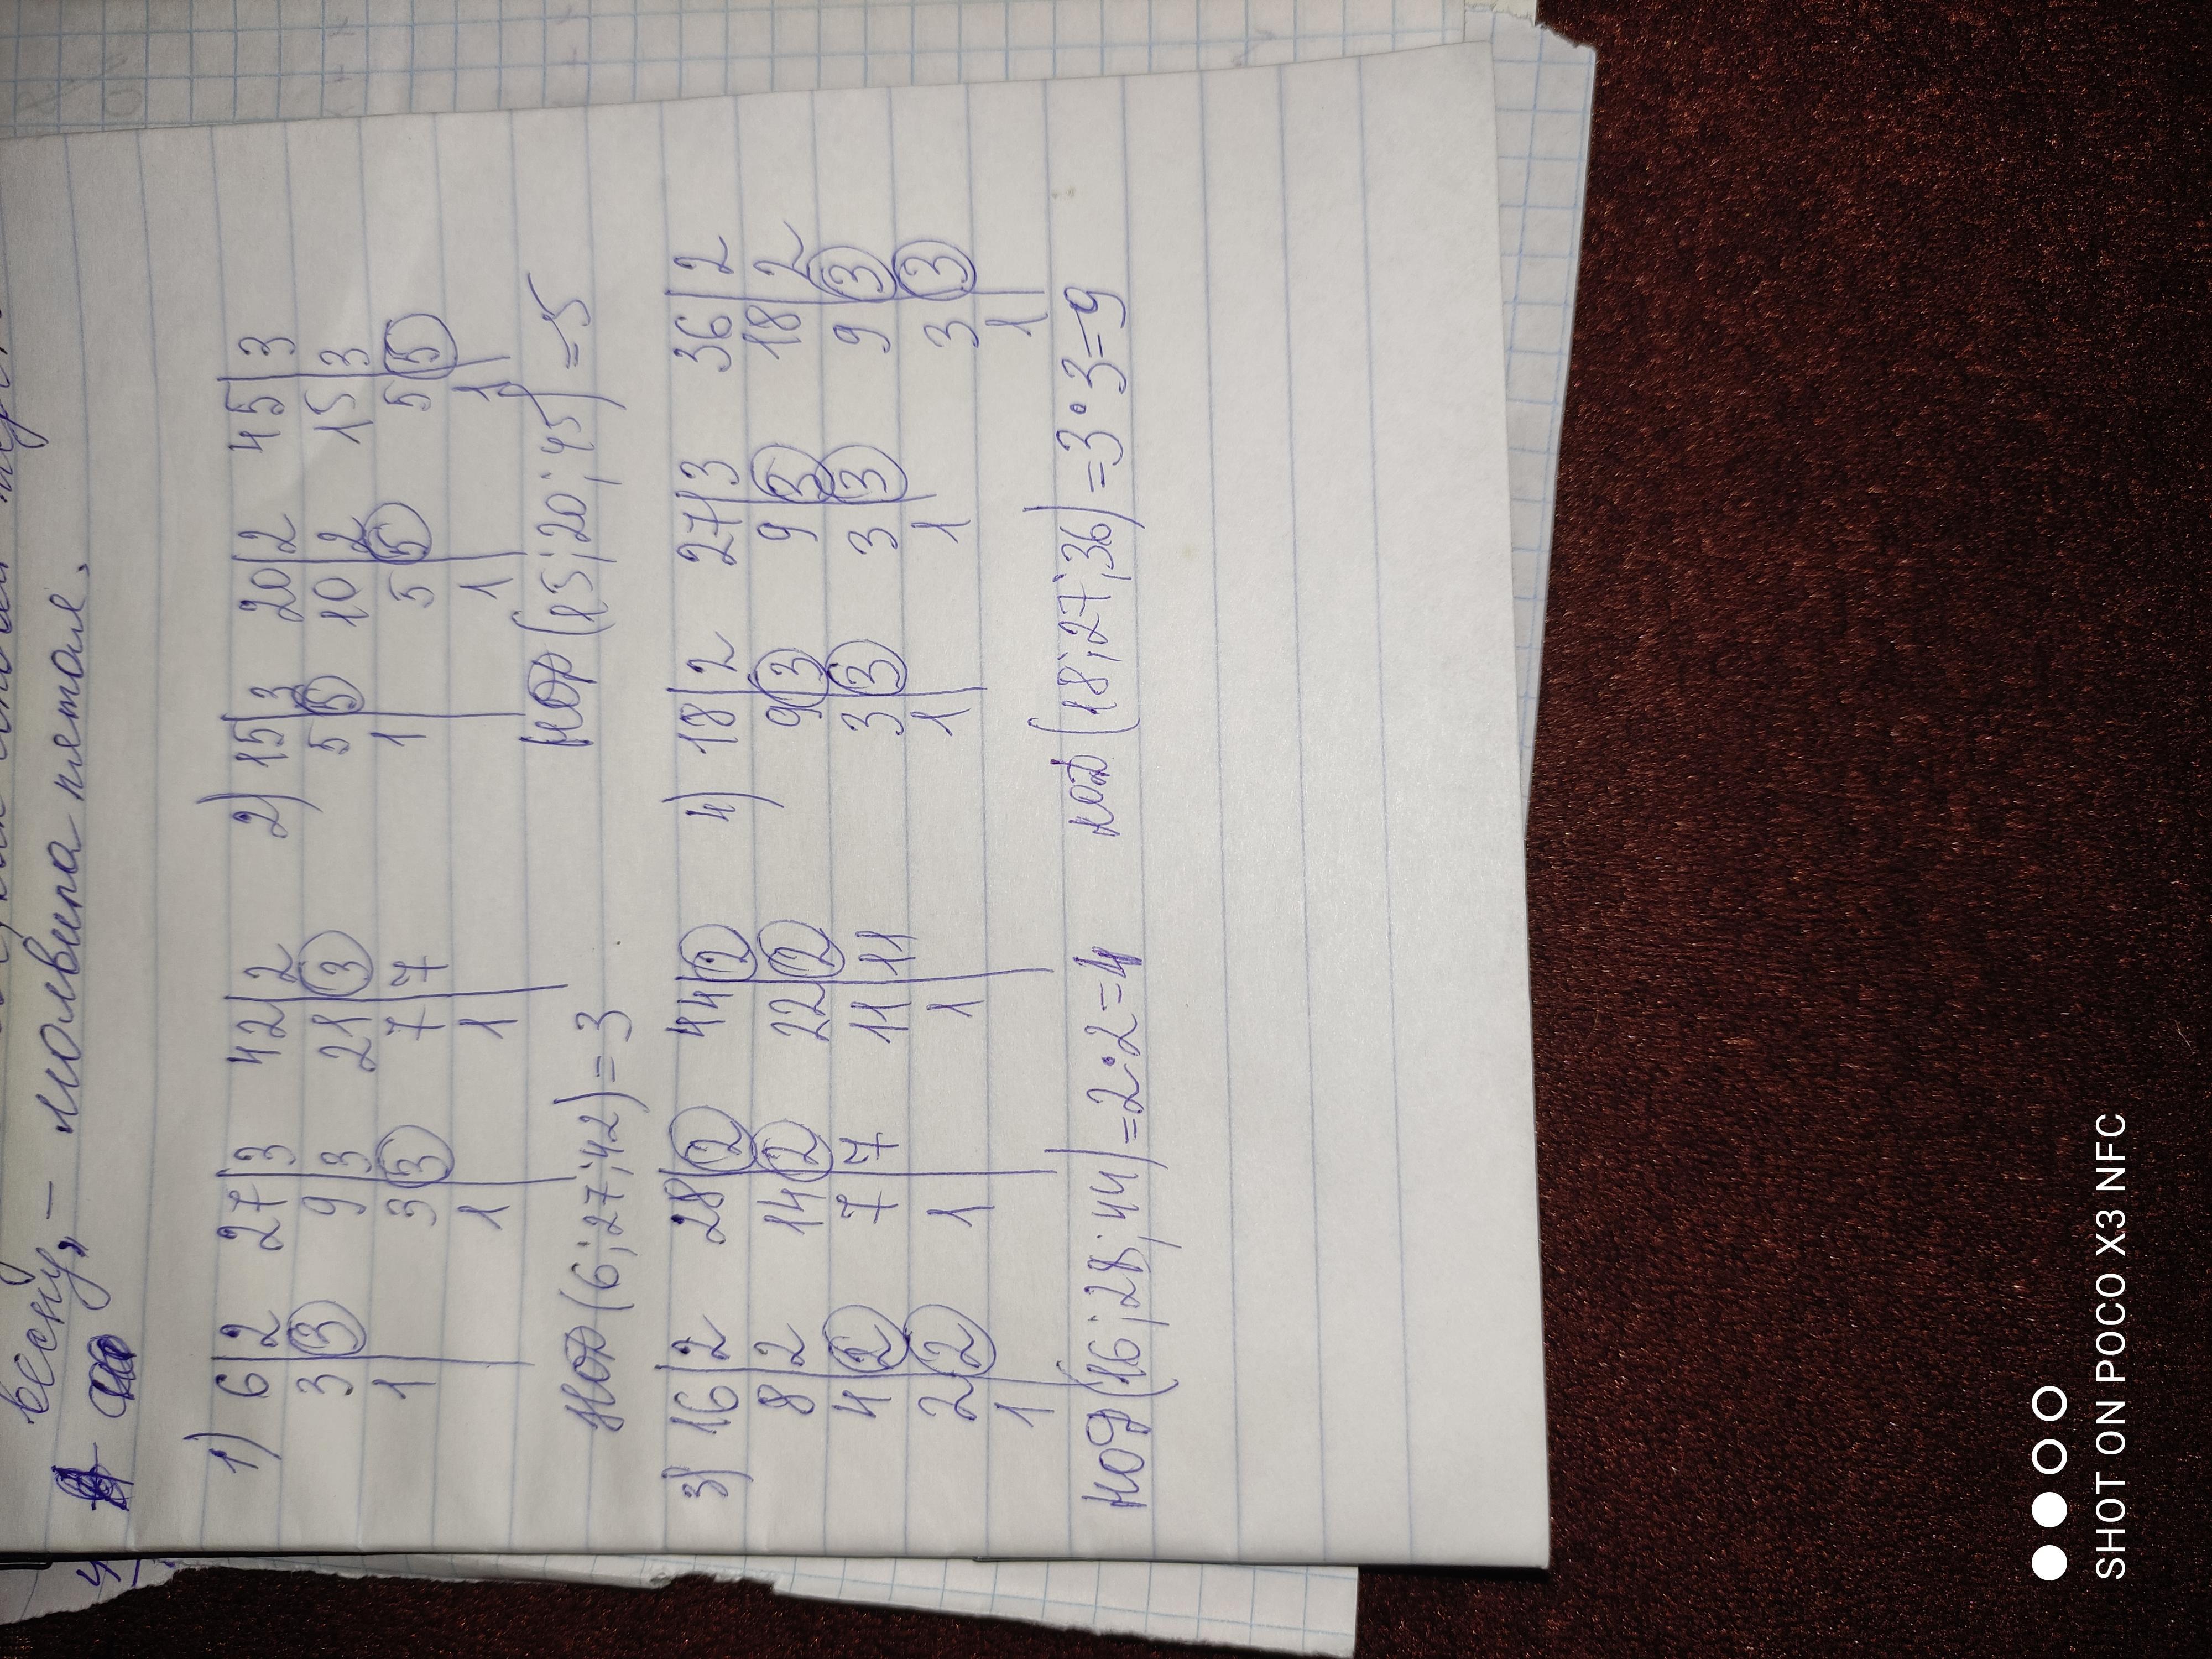 весну, -
молвила пчела.
1) 6 | 2 27 | 3 42 | 2
3 | 3 9 | 3 21 | 3
1 3 | 3 7 | 7
1 1
НОД (6; 27; 42) = 3
2) 15 | 3 20 | 2 45 | 3
5 | 5 10 | 2 15 | 3
1 5 | 5 5 | 5
1 1
НОД (15; 20; 45) = 5
3) 16 | 2 28 | 2 44 | 2
8 | 2 14 | 2 22 | 2
4 | 2 7 | 7 11 | 11
2 | 2 1 1
1
НОД (16; 28; 44) = 2·2=4
4) 18 | 2 27 | 3 36 | 2
9 | 3 9 | 3 18 | 2
3 | 3 3 | 3 9 | 3
1 1 3 | 3
1
НОД (18; 27; 36) = 3·3=9
SHOT ON POCO X3 NFC